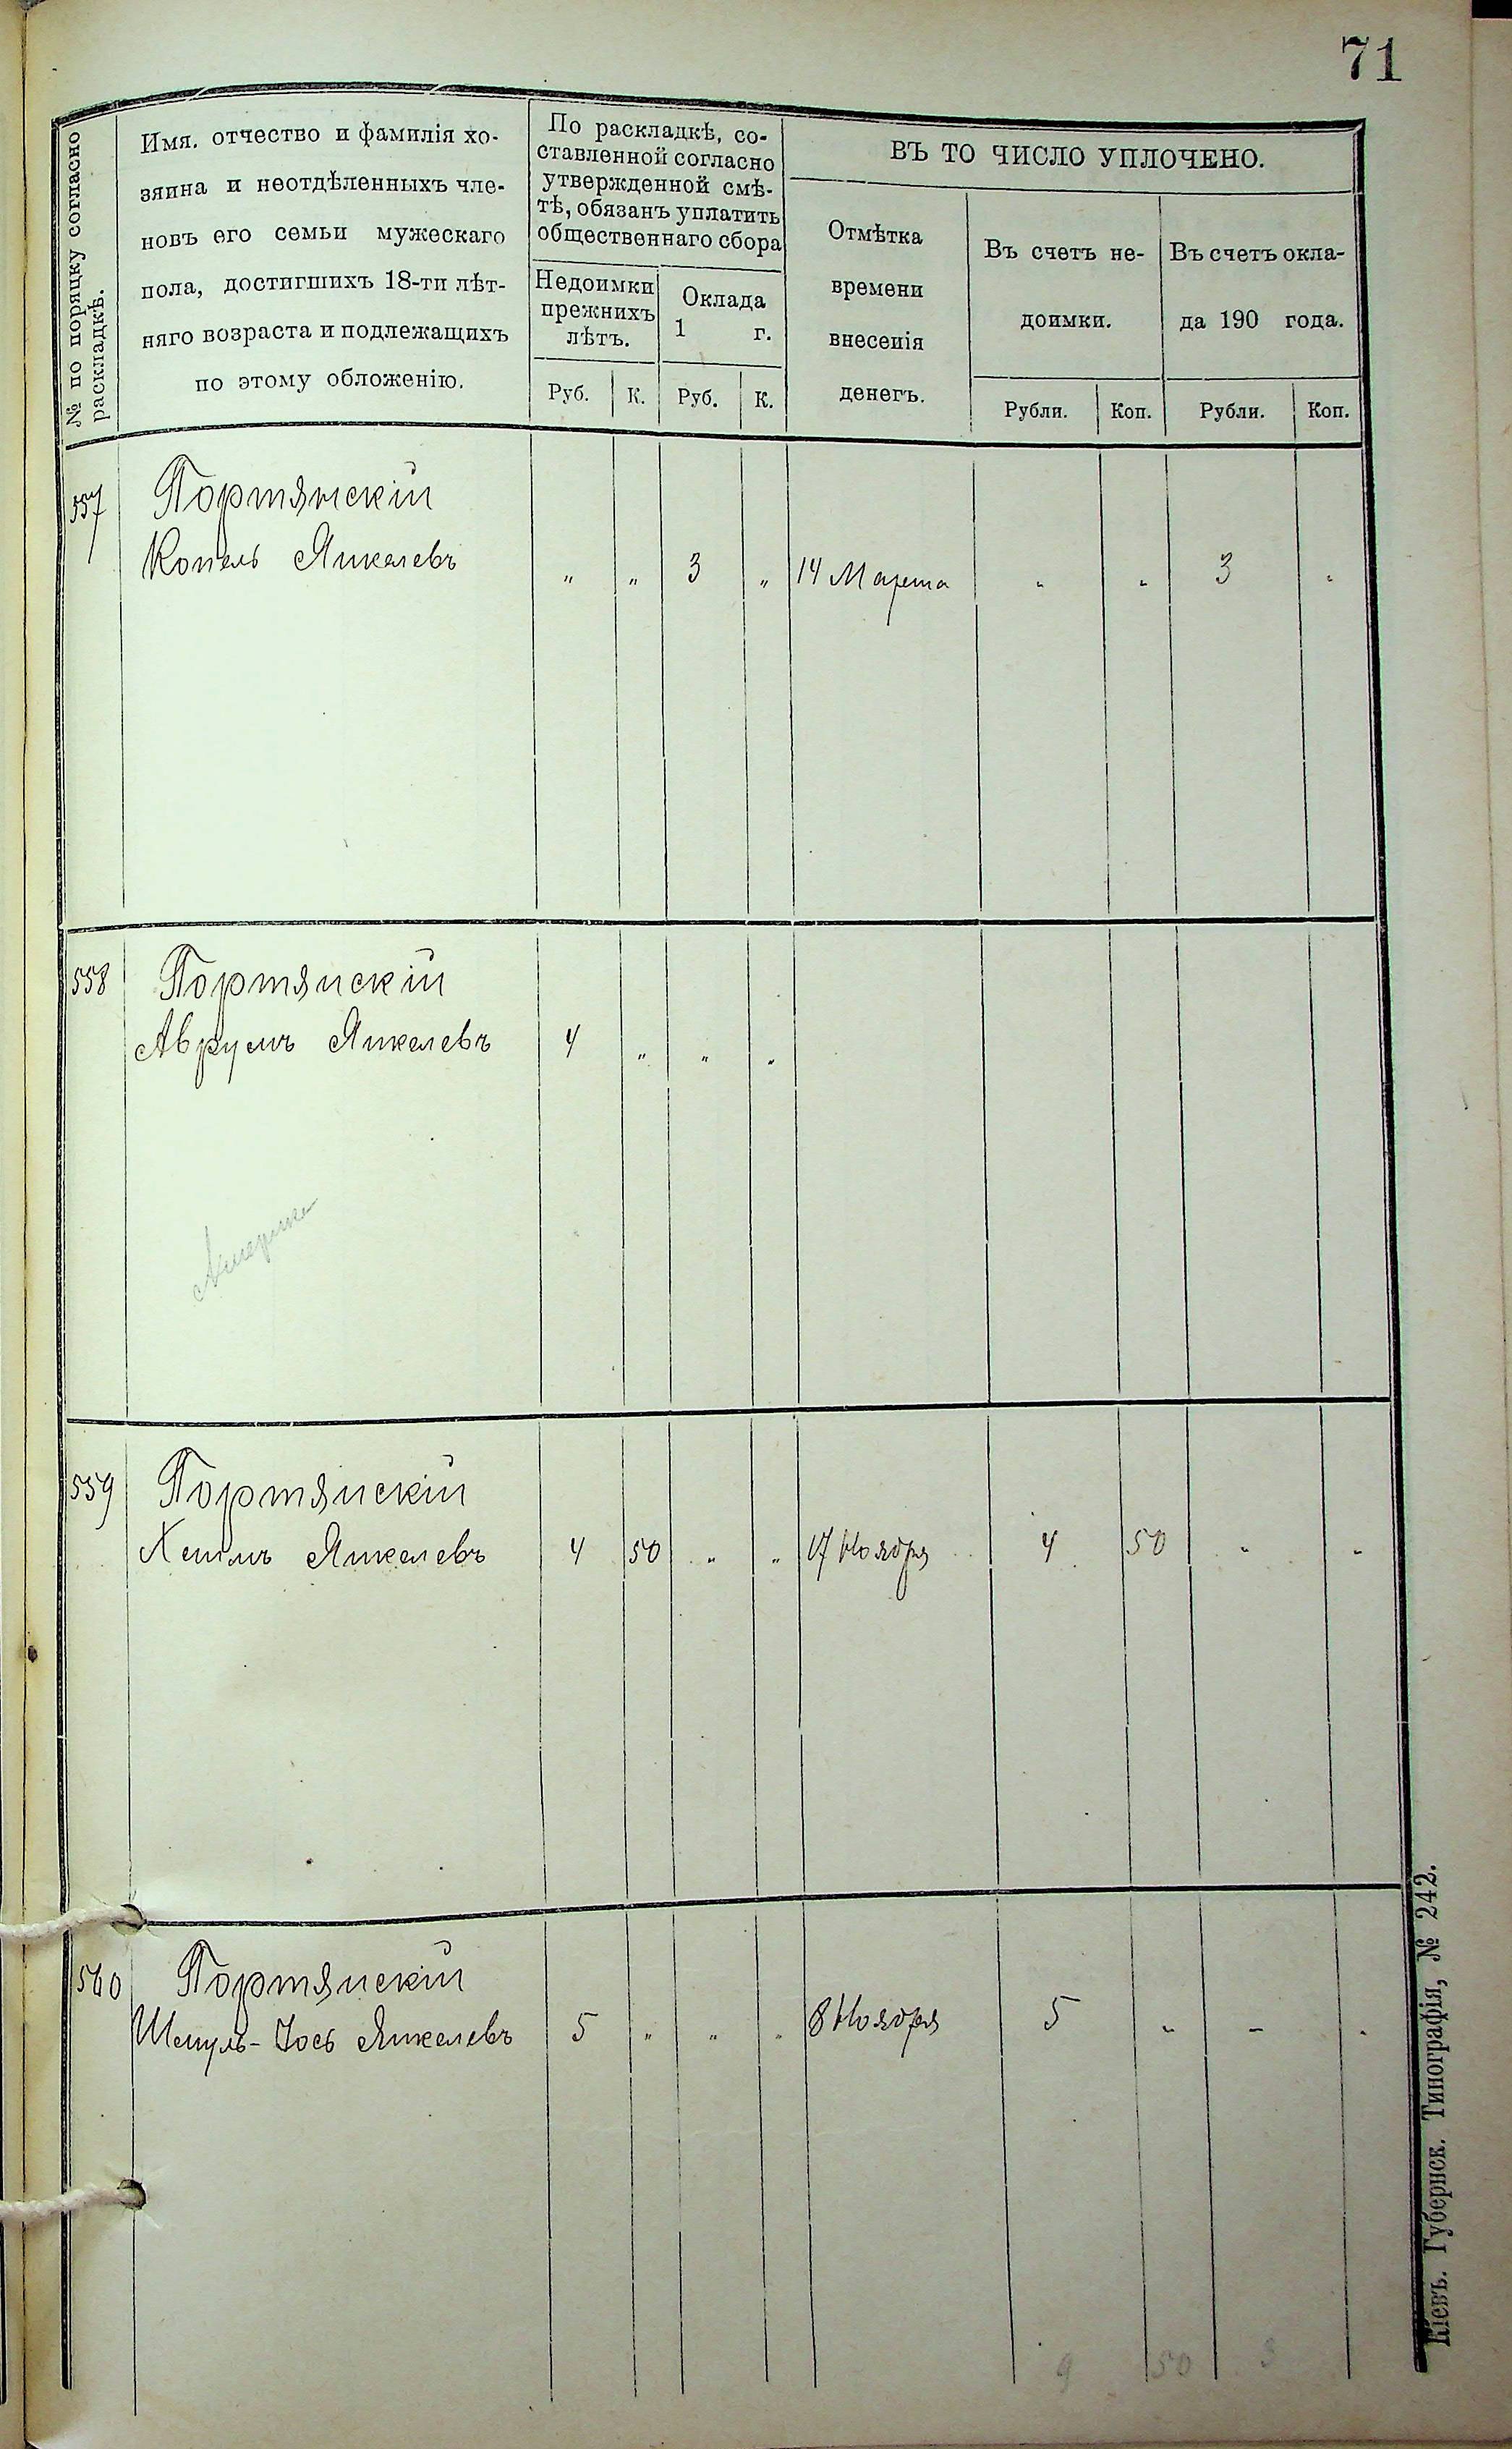 71
№ по поряцку согласно
раскладкѣ.
Имя. отчество и фамилія хо-
зяина и неотдѣленныхъ чле-
новъ его семьи мужескаго
пола, достигшихъ 18-ти лѣт-
няго возраста и подлежащихъ
по этому обложенію.
По раскладкѣ, со-
ставленной согласно
утвержденной смѣ-
тѣ, обязанъ уплатить
общественнаго сбора
Недоимки
прежнихъ
лѣтъ.
Оклада
1 г.
Руб. К. Руб. К.
ВЪ ТО ЧИСЛО УПЛОЧЕНО.
Отмѣтка
времени
внесенія
денегъ.
Въ счетъ не-
доимки.
Въ счетъ окла-
да 190 года.
Рубли. Коп. Рубли. Коп.
557 Портянскій
Копель Янкелевъ „ „ 3 „ 14 Марта „ „ 3 „
558 Портянскій
Аврумъ Янкелевъ 4 „ „ „
Америка
559 Портянскій
Хаимъ Янкелевъ 4 50 „ „ 17 Ноября 4 50 „ „
560 Портянскій
Шмуль-Іось Янкелевъ 5 „ „ „ 8 Ноября 5 „ – „
9 50 3
Кіевъ. Губернск. Типографія, № 242.